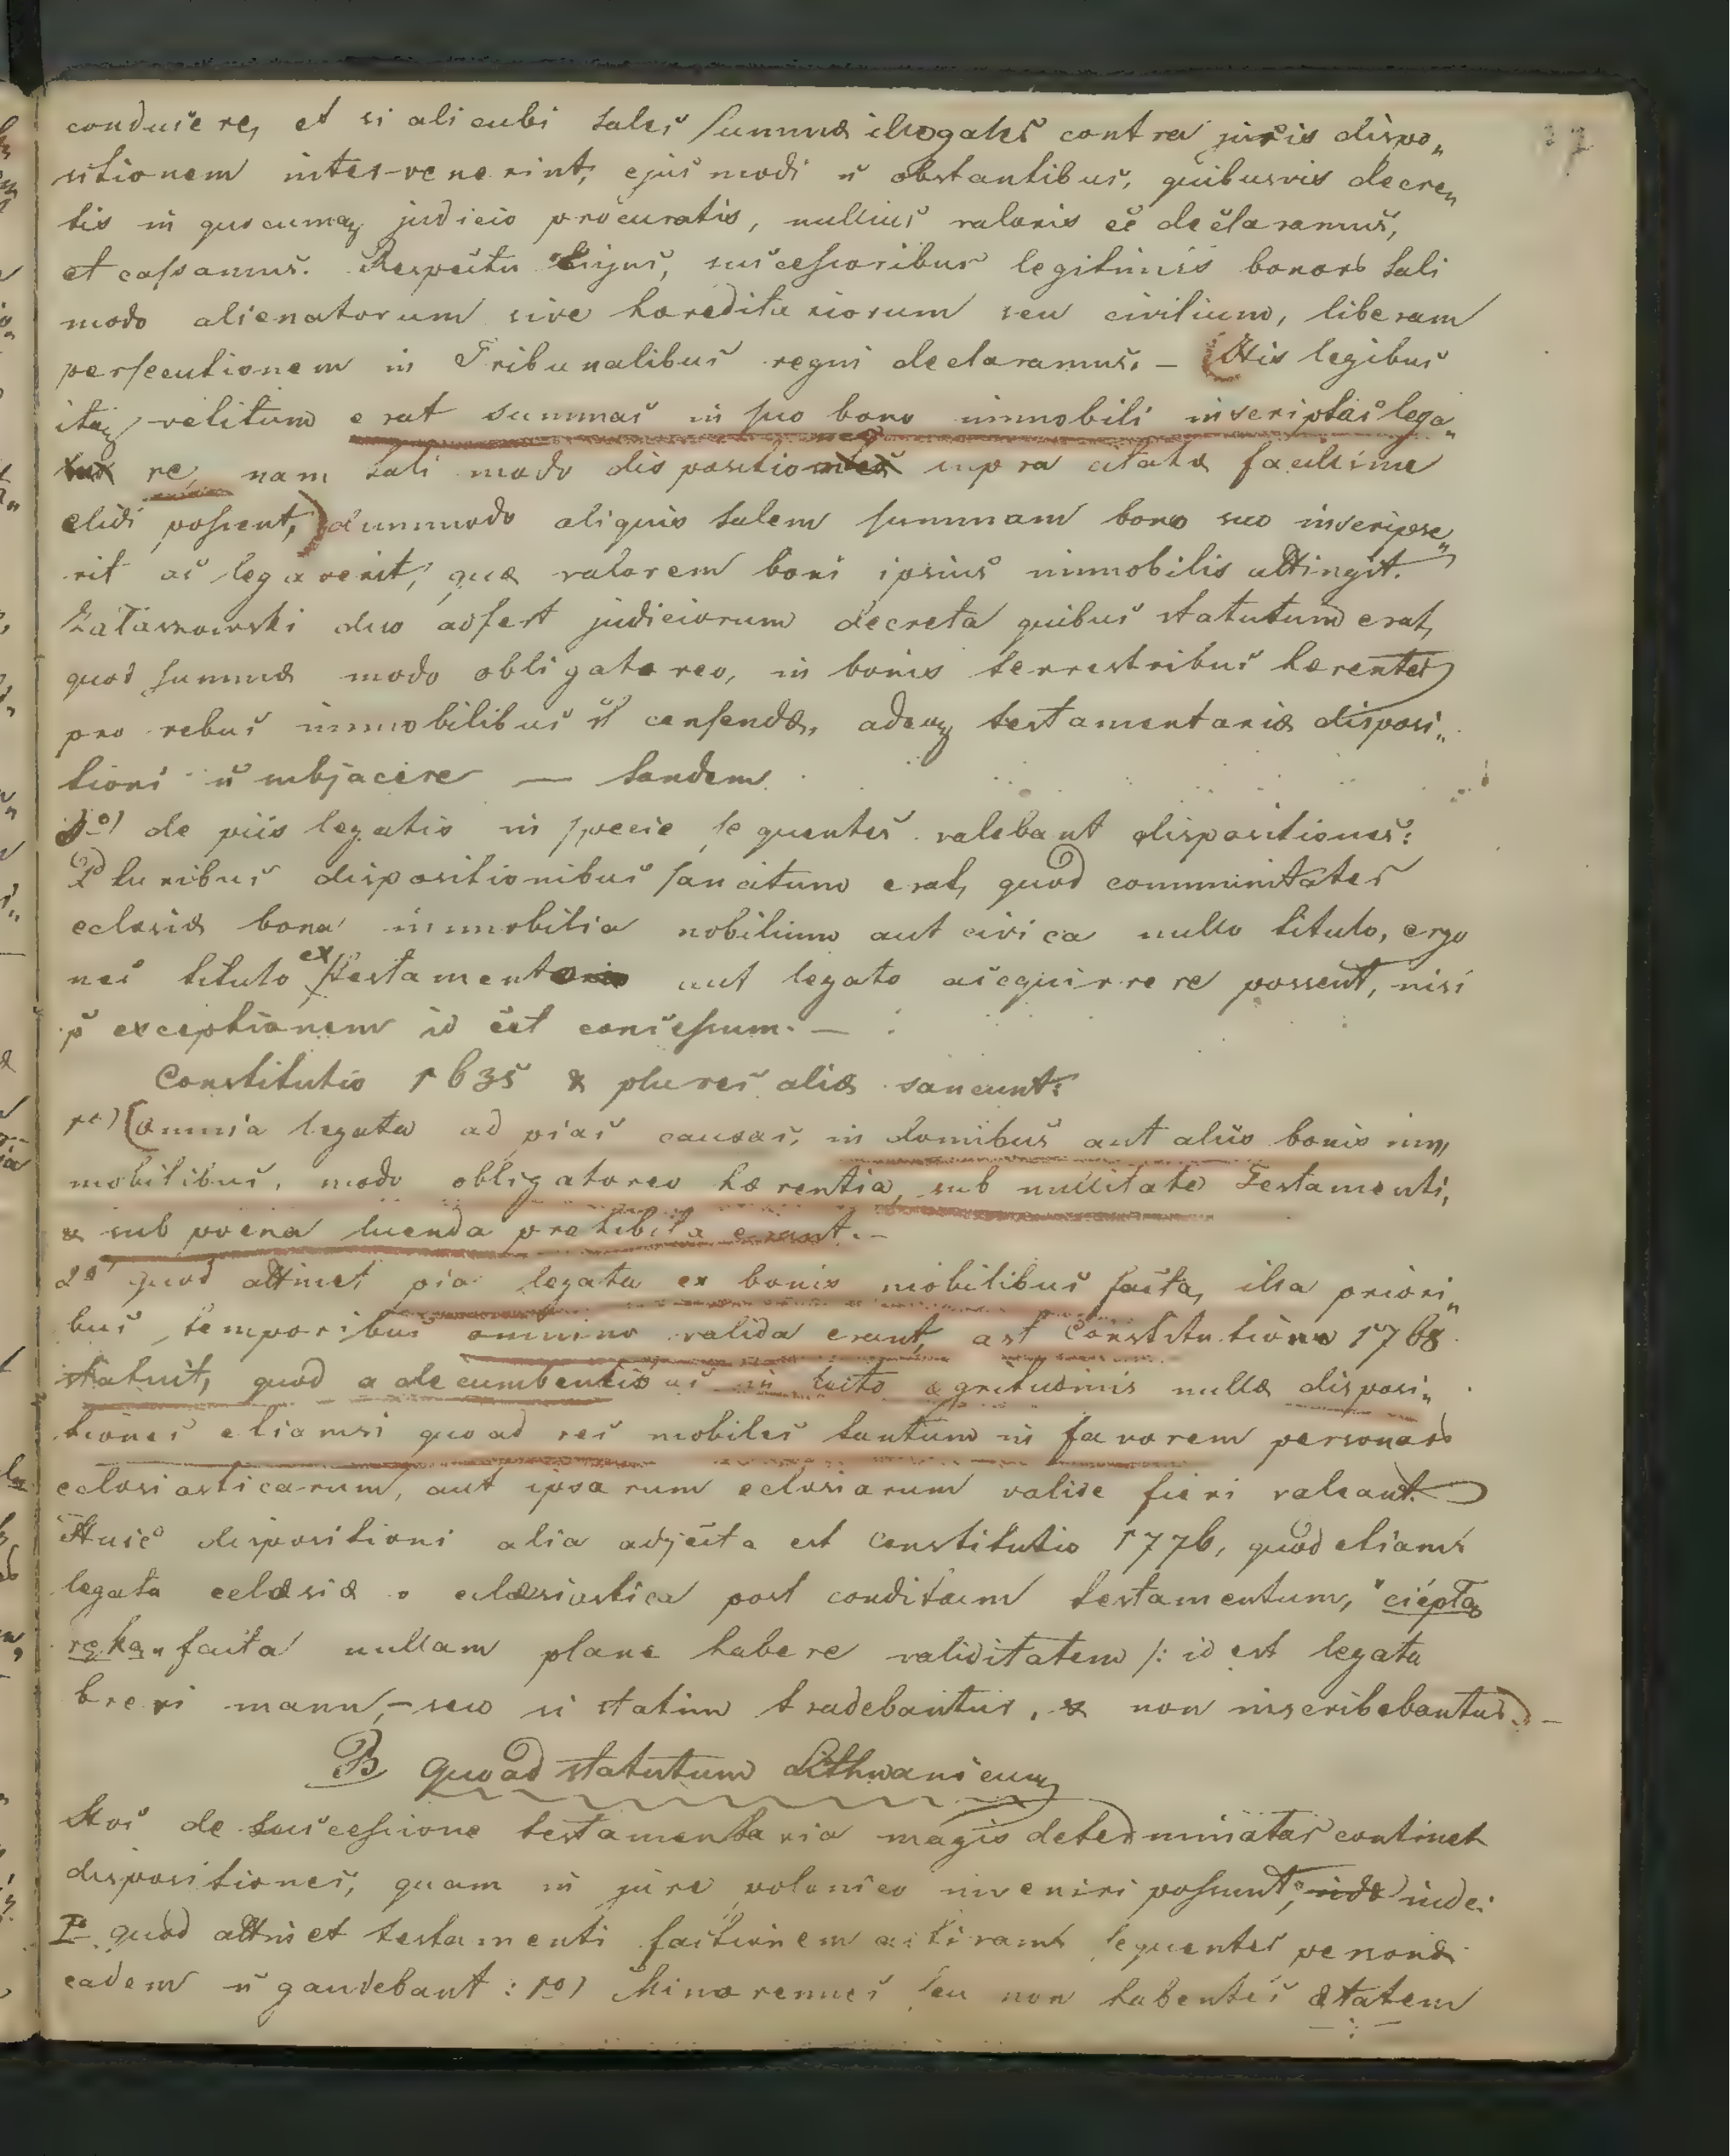 conducere, et si alicubi tales summæ illegales contra juris dispo„
sitionem inter-venerint, ejusmodi n̄ obstantibus, quibusvis decre„
tis in quocumq judicio procuratis, nullius valoris ee declaramus,
et cassamus. Respectu cujus, successoribus legitimis bonorb tali
modo alienatorum sive hæreditariorum seu civilium, liberam
persecutionem in Tribunalibus regni declaramus. — (His legibus
itaq vetitum erat summas in suo bono immobili inscriptas lega„
re, nam tali modo dispositiones supra citatæ facilime
elidi possent,) dummodo aliquis talem summam bono suo inscripse„
rit ac legaverit, quæ valorem boni ipsius immobilis attingit.
Załaszowski duo adfert judiciorum decreta quibus statutum erat,
quod summæ modo obligatoreo, in bonis terrestribus hærentes
pro rebus immobilibus n̄ censendæ, adeoq testamentariæ disposi„
tioni n̄ subjacere — tandem
3o) de piis legatis in specie sequentes valebant dispositiones:
Pluribus dispositionibus sancitum erat, quod communitates
eclesiæ bona immobilia nobilium aut civica nullo titulo, ergo
nec titulo ex testamento aut legato acequirrere possent, nisi
p exceptionem id eet concessum. —
Constitutio 1635 & plures aliæ sancunt:
1o) (omnia legata ad pias causas, in domibus aut aliis bonis im„
mobilibus, modo obligatoreo hærentia, sub nullitate Testamenti,
& sub poena luenda prohibita erant. —
2o quod attinet pia legata ex bonis mobilibus facta, illa priori„
bus temporibus omnino valida erant, ast Constitutione 1768
statuit, quod a decumbentibus in lecto ægritudinis nullæ disposi„
tiones etiamsi quoad res mobiles tantum in favorem personarb
eclesiasticarum, aut ipsarum eclesiarum valide fieri valeant.
Huic dispositioni alia adjecta est constitutio 1776, quod etiam
legata eclæsiæ o eclæsiastica post conditum testamentum, "ciepłą
ręką„ facta nullam plane habere validitatem /: id est legata
brevi manu, — seu si statim tradebantur, & non inscribebantur). —
B quoad statutum Lithuanicum
Hoc de successione testamentaria magis determinatas continet
dispositiones, quam in jure polonico inveniri possunt, inde:
Io quod attinet testamenti factionem activam sequentes personæ
eadem n̄ gaudebant: 1o) Minorennes seu non habentes ætatem